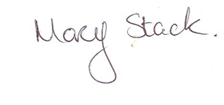 Mary Stack.